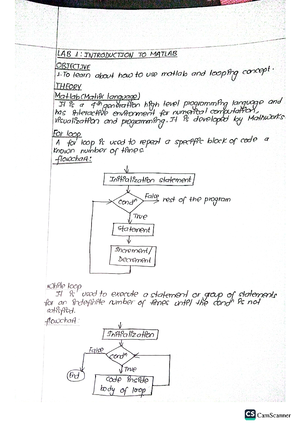 LAB 1: INTRODUCTION TO MATLAB
OBJECTIVE
1. To learn about how to use matlab and looping concept.
THEORY
Matlab (Matrix language)
It is a 4th generation high level programming language and
has interactive environment for numerical computation,
visualization and programming. It is developed by Mathworks
For loop
A for loop is used to repeat a specific block of code a
known number of times
flowchart:
Initialization statement
condn
False
rest of the program
True
Statement
Increment/
Decrement
While loop
It is used to execute a statement or group of statements
for an indefinite number of times until the condn is not
satisfied.
flowchart:
Initialization
False
condn
End
True
code inside
body of loop
CS CamScanner